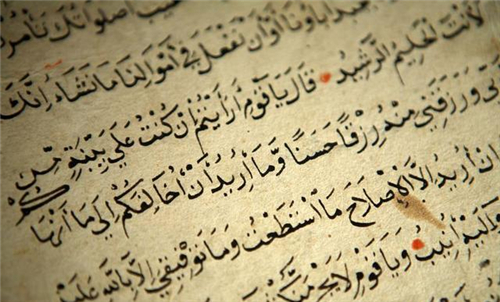 يعبد آباؤنا أو أن نفعل في أموالنا ما نشاء إنك
لأنت الحليم الرشيد قال يا قوم أرأيتم إن كنت على بينة من
ربي ورزقني منه رزقا حسنا وما أريد أن أخالفكم إلى ما أنها
كم
إن أريد إلا الإصلاح ما استطعت وما توفيقي إلا بالله عليه
وإليه أنيب ويا قوم لا يجرمنكم